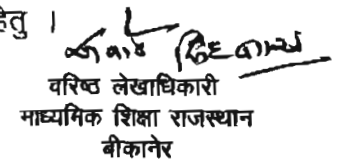 हेतु ।
वरिष्ठ लेखाधिकारी
माध्यमिक शिक्षा राजस्थान
बीकानेर